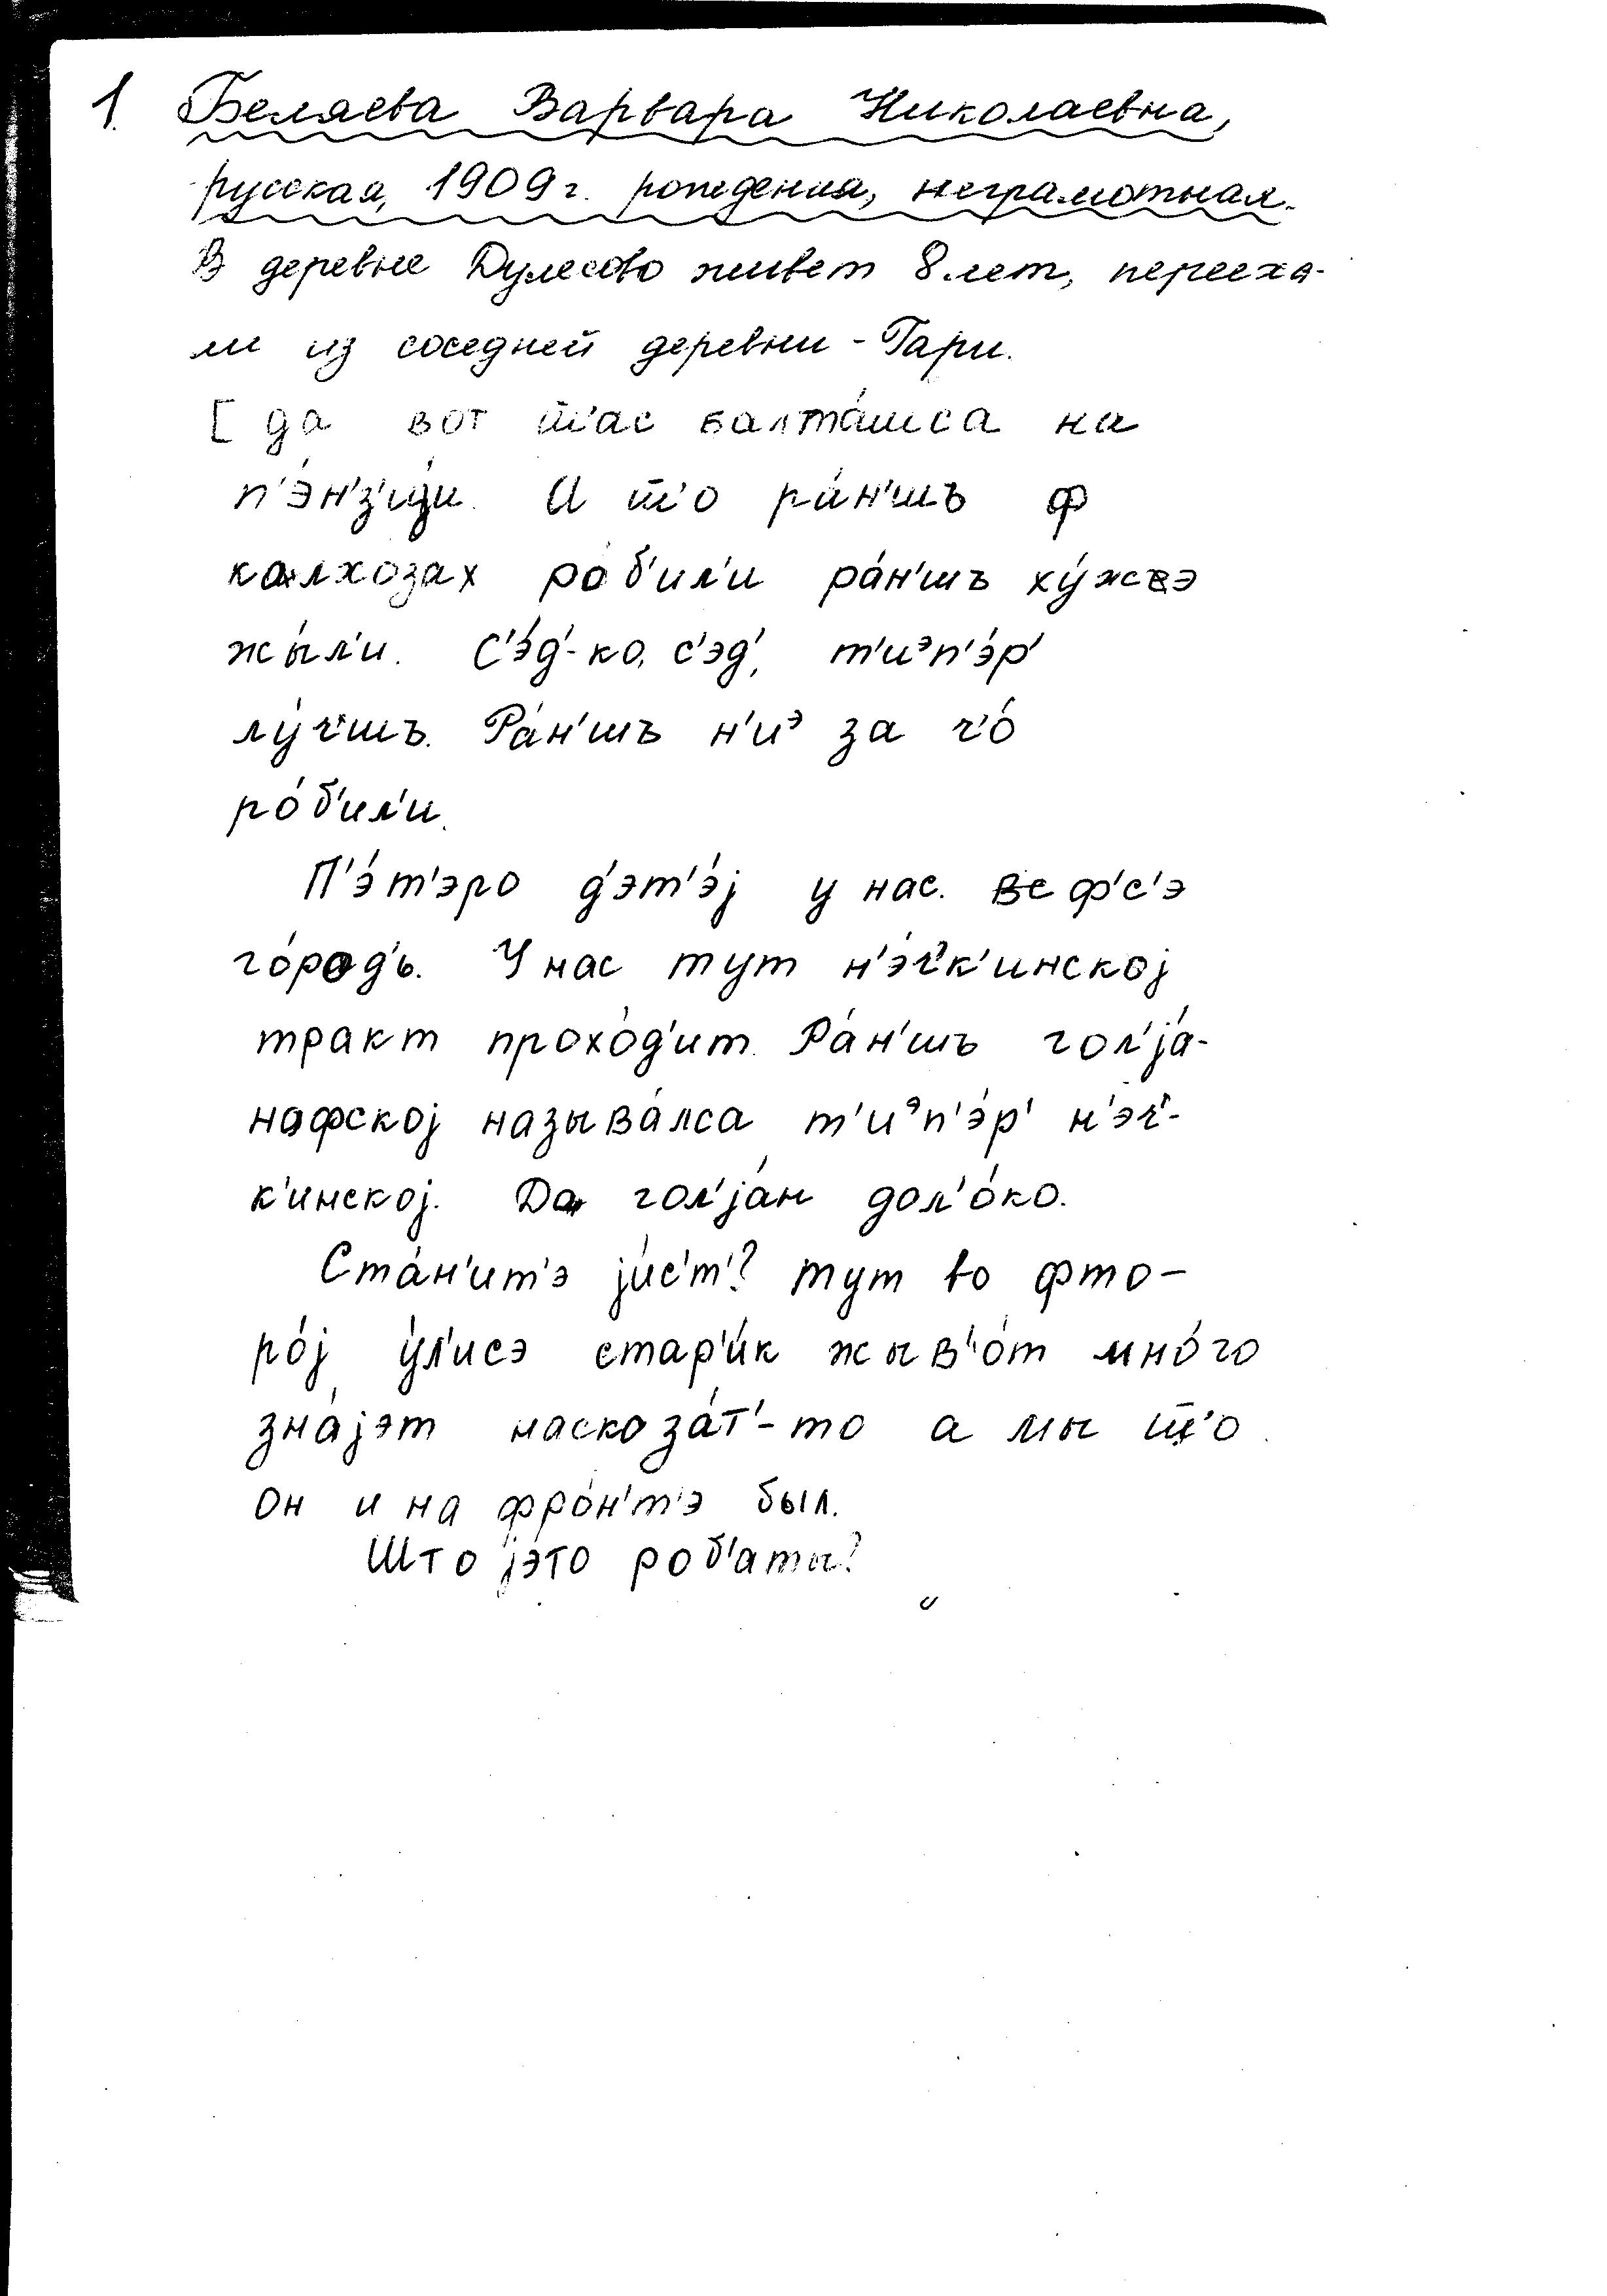 1. Беляева Варвара Николаевна,
русская, 1909 г. рождения, неграмотная.
В деревне Дулесово живет 8 лет, перееха-
ли из соседней деревни - Гари.
[ да вот ш'ас балта́шса на
п'э́н'з'ии. А ш'о ра́н'шъ ф
калхозах роб'ил'и ра́н'шъ ху́жэ
жы́л'и. С'э́д'-ко, с'эд', т'иэп'э́р'
лу́ч'шъ. Ра́н'шъ н'иэ за ч'о́
ро́б'ил'и.
П'э́т'эро д'эт'э́j у нас. ф'с'э
го́род'ь. У нас тут н'э́ч'к'инскоj
тракт прохо́д'ит. Ра́н'шъ гол'jа́-
нафскоj называ́лса т'иэп'э́р' н'эч'-
к'инскоj. Да гол'jа́н дол'о́ко.
Ста́н'ит'э jис'т'? тут во фто-
ро́j у́л'исэ стар'и́к жыв'о́т мно́го
зна́jэт наскоза́т'-то а мы ш'о.
Он и на фро́н'т'э был.
Што jэ́то роб'аты?